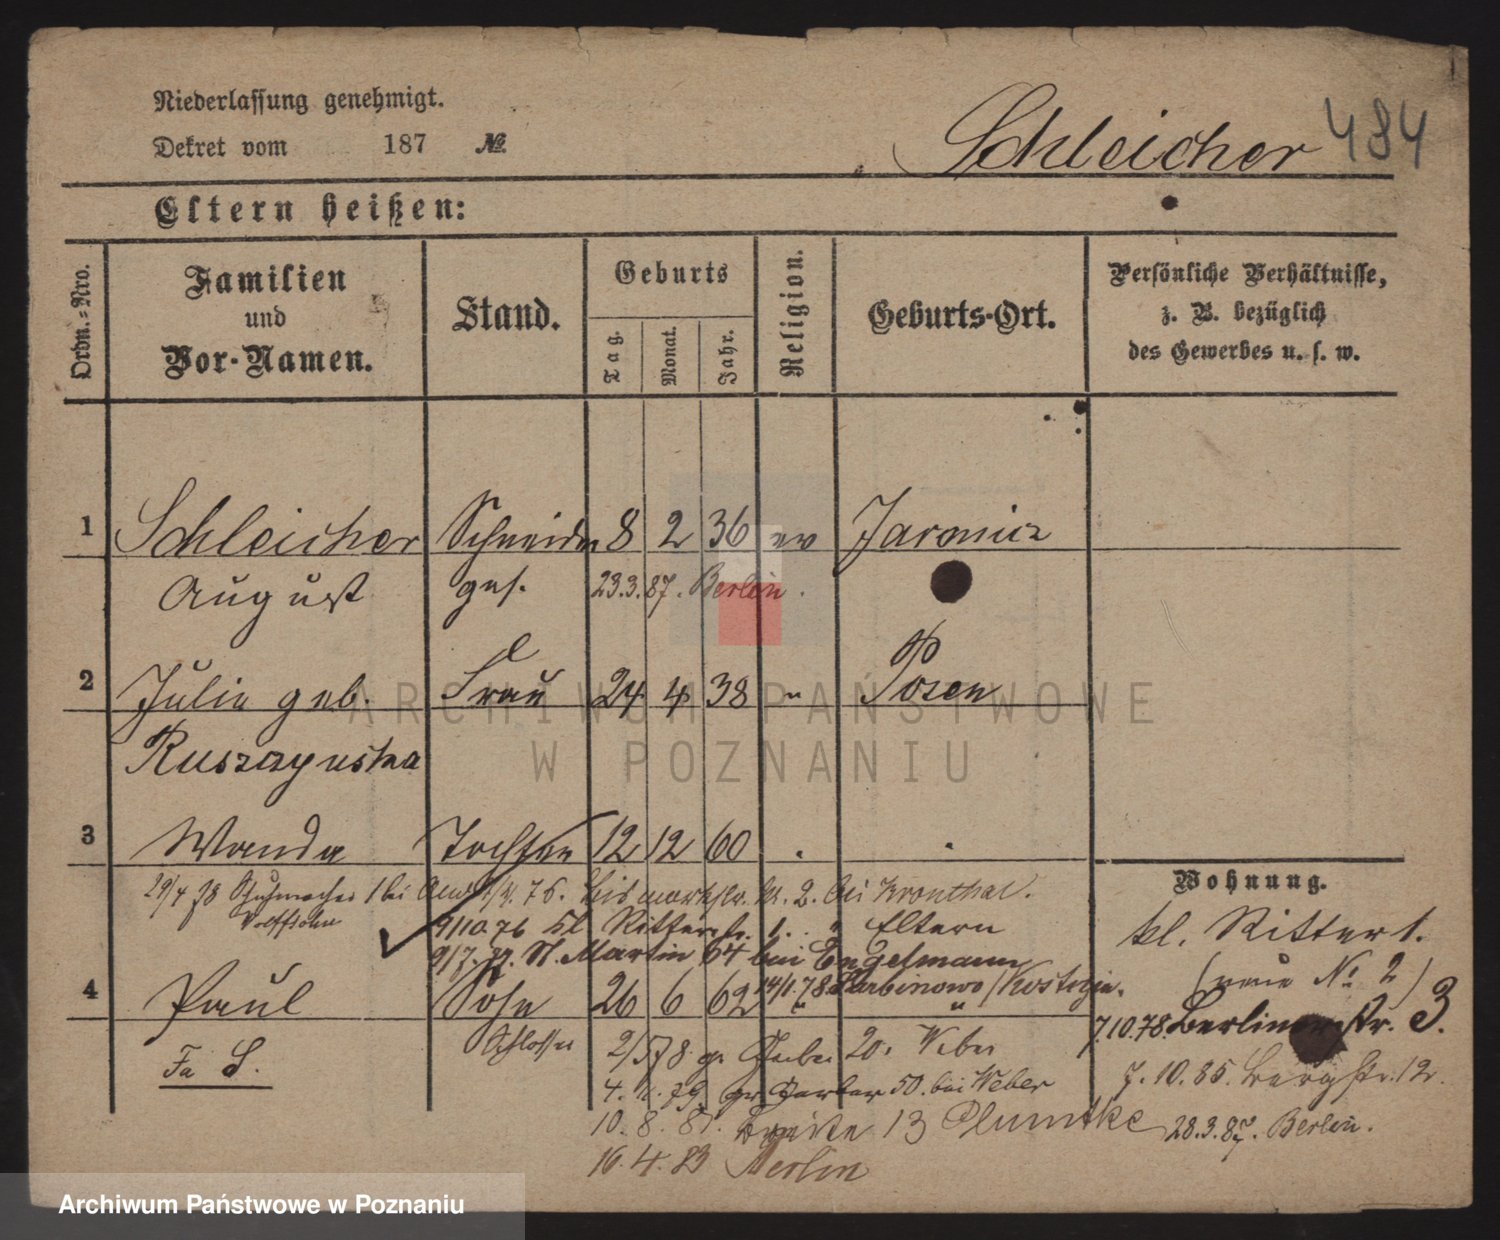 Niederlassung genehmigt.
Dekret vom 187 №
Schleicher 484
Eltern heißen:
Ordn.-Nro.
Familien
und
Vor-Namen.
Stand.
Geburts
Tag.
Monat.
Jahr.
Religion.
Geburts-Ort.
Persönliche Verhältnisse,
z. B. bezüglich
des Gewerbes u. s. w.
1 Schleicher Schneider 8 2 36 ev
August ges. 23.3.87. Berlin.
2 Julie geb. Frau 24 4 38 " Posen
3 Wanda Tochter 12 12 60
Wohnung.
29/4 78 bei 76. 2. bei Kronthal.
9/10 76 kl. Ritterstr. 1. Eltern
St. Martin 64 bei Engelmann
kl. Ritter 1.
(neue No 2)
4 Paul Sohn 26 6 62 14/1.78 "
7.10.78. Berlinerstr. 3.
Schlosser
Fa S.
2/5 78 gr. 20. Weber
7.10.85. Bergstr. 12.
4. 79 gr Gerber 50. bei Weber
10.8.81. Breite 13 Plumtke
28.3.87. Berlin.
16.4.83 Berlin
ARCHIWUM PAŃSTWOWE
W POZNANIU
Archiwum Państwowe w Poznaniu